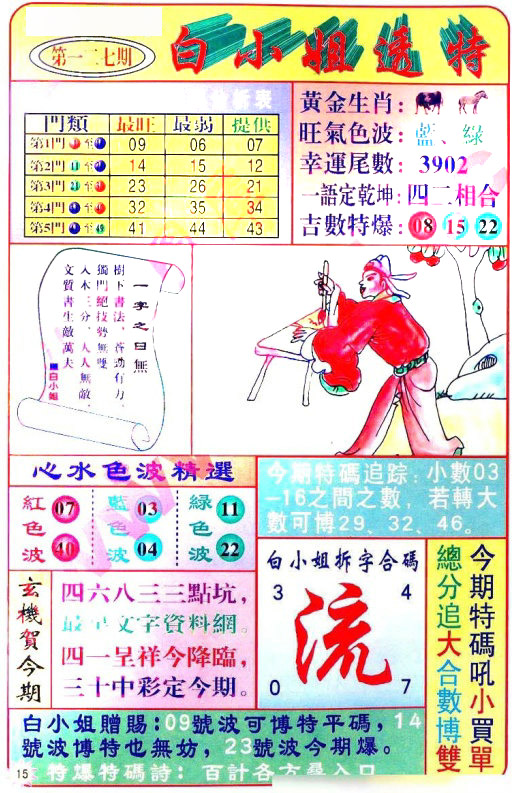 第一二七期
白小姐透特
門類 最旺 最弱 提供
第1門 至 09 06 07
第2門 至 14 15 12
第3門 至 23 26 21
第4門 至 32 35 34
第5門 至 41 44 43
黃金生肖：
旺氣色波：藍、綠
幸運尾數：3902
一語定乾坤：四二相合
吉數特爆：08 15 22
一字之曰無
樹下書法，蒼勁有力，
獨門絕技勢無雙
入木三分，人人無敵，
文質書生敵萬夫
白小姐
心水色波精選
紅色波 07 40
藍色波 03 04
綠色波 11 22
今期特碼追踪：小數03
-16之間之數，若轉大
數可博29、32、46。
玄機賀今期
四六八三三點坑，
文字資料網。
四一呈祥今降臨，
三十中彩定今期。
白小姐拆字合碼
3 4
流
0 7
今期特碼吼小買單
總分追大合數博雙
白小姐贈賜：09號波可博特平碼，14
號波博特也無妨，23號波今期爆。
特爆特碼詩：百計各方尋入口
15